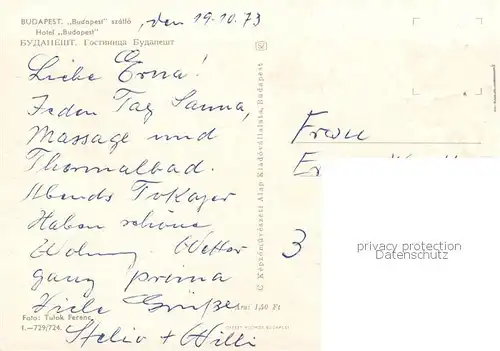 BUDAPEST. „Budapest” szálló
Hotel „Budapest”
БУДАПЕШТ. Гостиница Будапешт
, den 19.10.73
Liebe Erna!
Jeden Tag Sauna,
Massage und
Thermalbad.
Abends Tokajer
Haben schöne
Wohnung. Wetter
ganz prima
Viele Grüße
Stelio + Willi
Ára: 1,40 Ft
Foto: Tulok Ferenc
I.—729/724.
C Képzőművészeti Alap Kiadóvállalata, Budapest
Frau
3
privacy protection